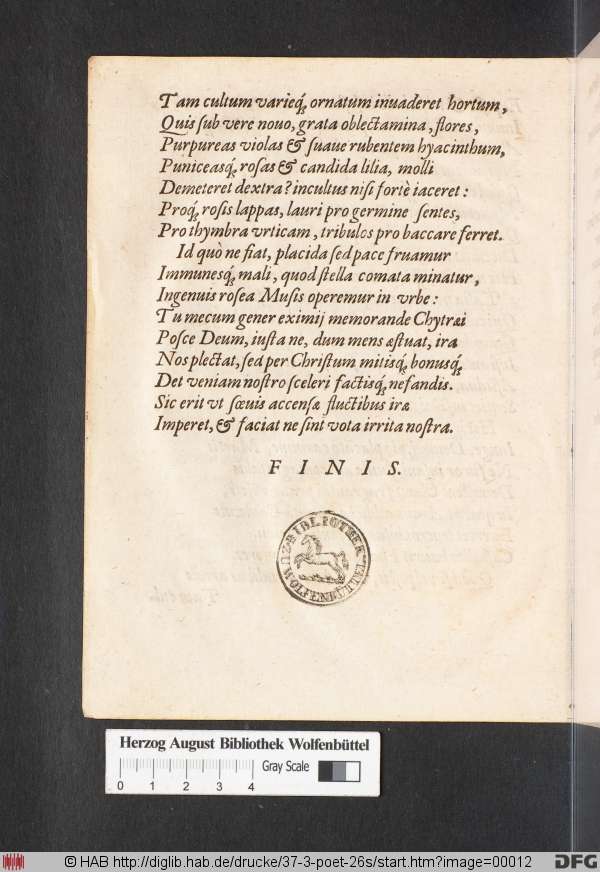 Tam cultum varieq́; ornatum inuaderet hortum,
Quis ſub vere nouo, grata oblectamina, flores,
Purpureas violas & ſuaue rubentem hyacinthum,
Puniceasq́; roſas & candida lilia, molli
Demeteret dextra? incultus niſi fortè iaceret:
Proq́; roſis lappas, lauri pro germine ſentes,
Pro thymbra vrticam, tribulos pro baccare ferret.
Id quò ne fiat, placida ſed pace fruamur
Immunesq́; mali, quod ſtella comata minatur,
Ingenuis roſea Muſis operemur in vrbe:
Tu mecum gener eximij memorande Chytræi
Poſce Deum, iuſta ne, dum mens æſtuat, ira
Nos plectat, ſed per Chriſtum mitisq́; bonusq́;
Det veniam noſtro ſceleri factisq́; nefandis.
Sic erit vt ſœuis accenſæ fluctibus iræ
Imperet, & faciat ne ſint vota irrita noſtra.
F I N I S.
BIBLIOTHEK
WOLFENBÜTTEL
Herzog August Bibliothek Wolfenbüttel
Gray Scale
0 1 2 3 4
© HAB http://diglib.hab.de/drucke/37-3-poet-26s/start.htm?image=00012
DFG